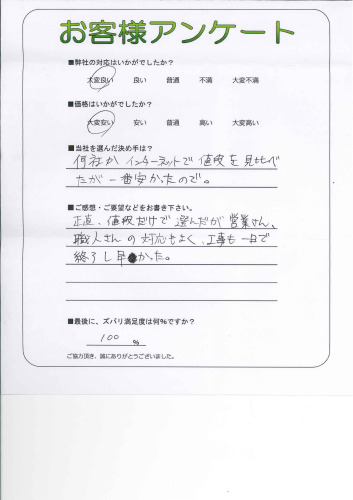 お客様アンケート
■弊社の対応はいかがでしたか？
大変良い 良い 普通 不満 大変不満
■価格はいかがでしたか？
大変安い 安い 普通 高い 大変高い
■当社を選んだ決め手は？
何社かインターネットで値段を見比べ
たが一番安かったので。
■ご感想・ご要望などをお書き下さい。
正直、値段だけで選んだが営業さん、
職人さんの対応もよく、工事も一日で
終了し早かった。
■最後に、ズバリ満足度は何%ですか？
100 %
ご協力頂き、誠にありがとうございました。